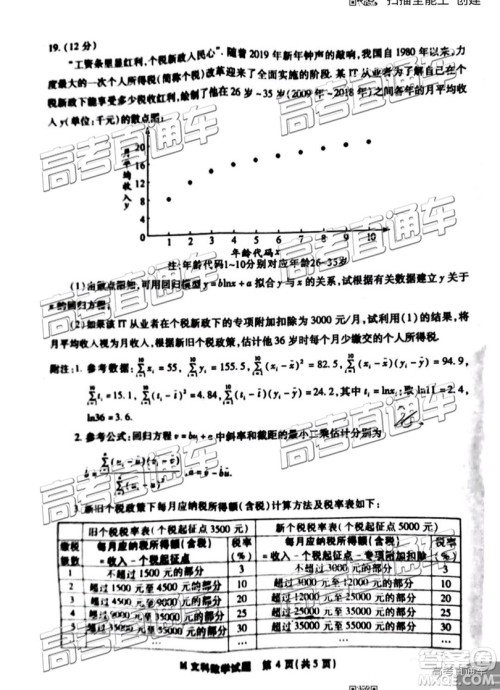 扫描全能王 创建
19.(12分)
“工资条里显红利,个税新政入民心”.随着2019年新年钟声的敲响,我国自1980年以来,力
度最大的一次个人所得税(简称个税)改革迎来了全面实施的阶段.某IT从业者为了解自己在个
税新政下能享受多少税收红利,绘制了他在26岁~35岁(2009年~2018年)之间各年的月平均收
入y(单位:千元)的散点图:
月平均收入y
20
16
12
8
4
1 2 3 4 5 6 7 8 9 10
年龄代码x
注:年龄代码1-10分别对应年龄26-35岁
(1)由散点图知,可用回归模型y=blnx+a拟合y与x的关系,试根据有关数据建立y关于
x的回归方程;
(2)如果该IT从业者在个税新政下的专项附加扣除为3000元/月,试利用(1)的结果,将
月平均收入视为月收入,根据新旧个税政策,估计他36岁时每个月少缴交的个人所得税.
附注:1.参考数据:∑xᵢ=55,∑yᵢ=155.5,∑(xᵢ-x̄)²=82.5,∑(xᵢ-x̄)(yᵢ-ȳ)=94.9,
∑tᵢ=15.1,∑(tᵢ-t̄)²=4.84,∑(tᵢ-t̄)(yᵢ-ȳ)=24.2,其中tᵢ=lnxᵢ;取ln11=2.4,
ln36=3.6.
2.参考公式:回归方程v=bu+a中斜率和截距的最小二乘估计分别为
b=∑(uᵢ-ū)(vᵢ-v̄)/∑(uᵢ-ū)²,a=v̄-bū
3.新旧个税政策下每月应纳税所得额(含税)计算方法及税率表如下:
旧个税税率表(个税起征点3500元) 新个税税率表(个税起征点5000元)
缴税级数 每月应纳税所得额(含税)=收入-个税起征点 税率(%) 每月应纳税所得额(含税)=收入-个税起征点-专项附加扣除 税率(%)
1 不超过1500元的部分 3 不超过3000元的部分 3
2 超过1500元至4500元的部分 10 超过3000元至12000元的部分 10
3 超过4500元至9000元的部分 20 超过12000元至25000元的部分 20
4 超过9000元至35000元的部分 25 超过25000元至35000元的部分 25
5 超过35000元至55000元的部分 30 超过35000元至55000元的部分 30
M文科数学试题 第4页(共5页)
高考直通车